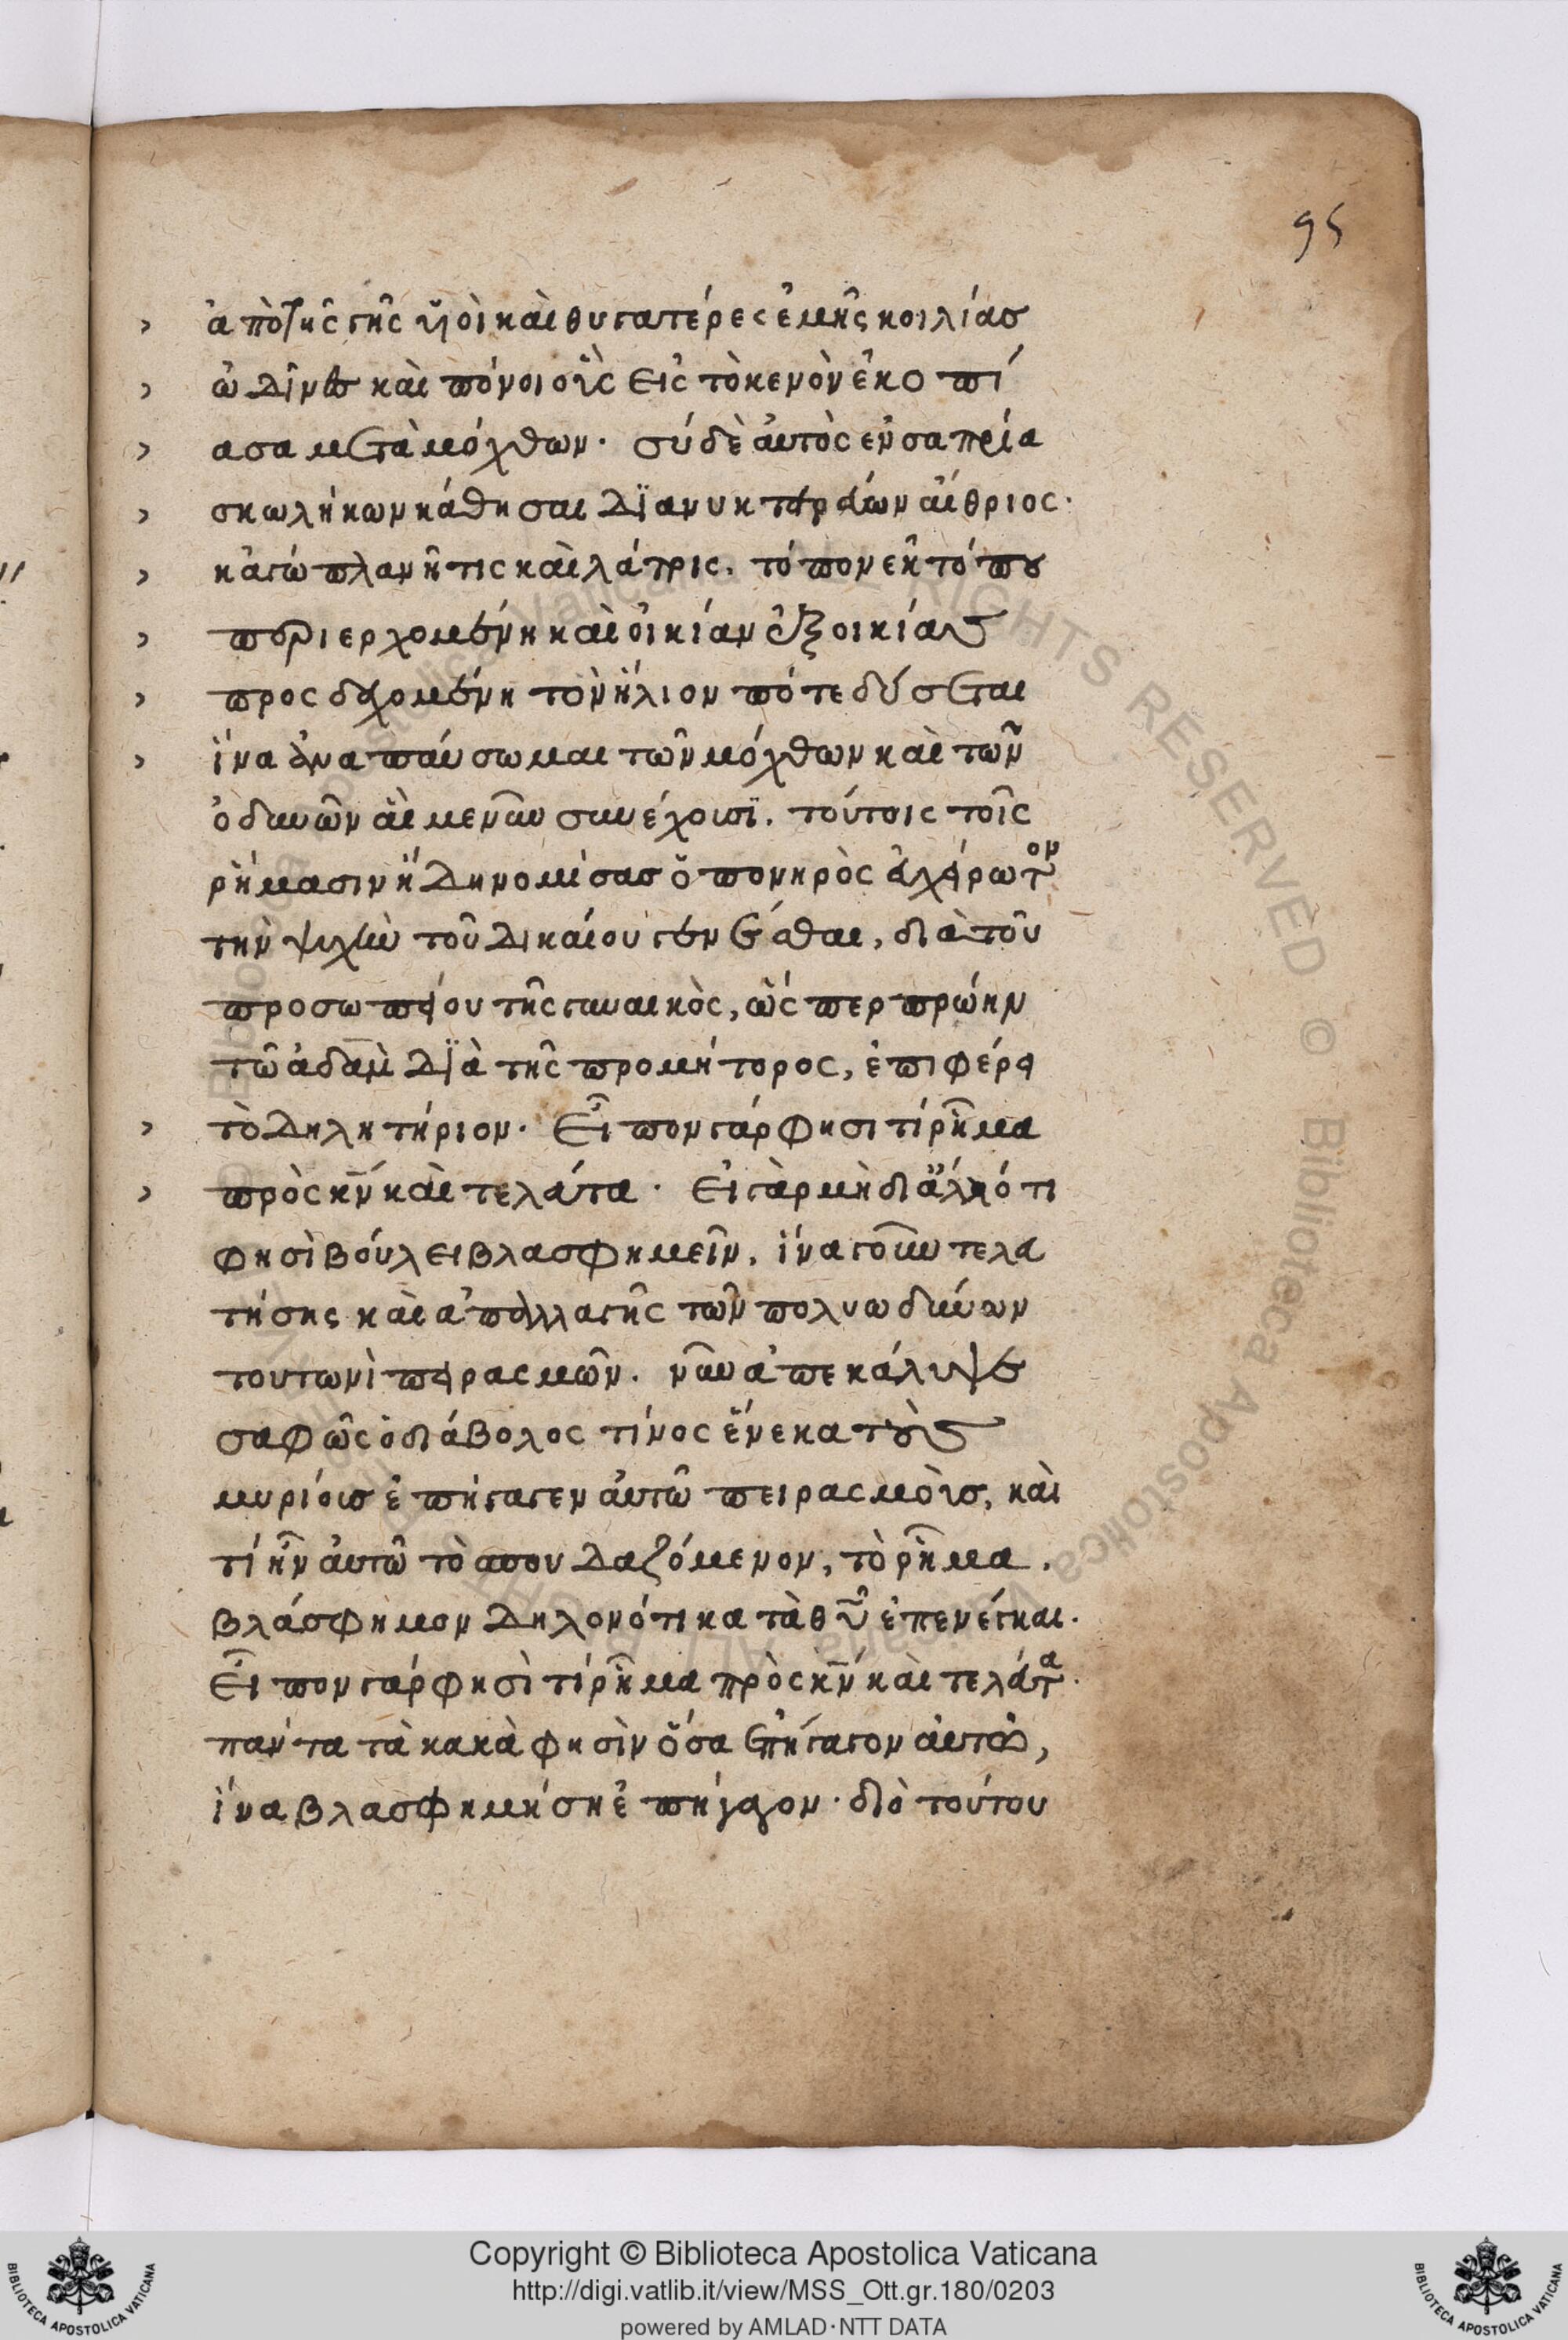 95
ἀπὸ τῆς γῆς ὑἱοὶ καὶ θυγατέρες ἐμῆς κοιλίας
ὠδῖνες καὶ πόνοι οἷς εἰς τὸ κενὸν ἐκοπί
ασα μετὰ μόχθων· σύ δὲ ἀυτὸς ἐν σαπρία
σκωλήκων κάθησαι διανυκτερεύων αἴθριος·
κἀγώ πλανῆτις καὶ λάτρις. τόπον ἐκ τόπου
περιερχομένη καὶ οἰκίαν ἐξ οἰκίας
προσδεχομένη τὸν ἥλιον πότε δύσεται
ἵνα ἀναπαύσωμαι τῶν μόχθων καὶ τῶν
ὀδυνῶν αἵ με νῦν συνέχουσϊ. τούτοις τοῖς
ρήμασιν ἤδη νομίσας ὁ πονηρὸς ἀλγέρωτον
τὴν ψυχὴν τοῦ δικαίου γενέσθαι, διὰ τοῦ
προσωπείου τῆς γυναικὸς, ὥς περ πρώην
τῶ ἀδὰμ διὰ τῆς προμήτορος, ἐπιφέρει
τὸ δηλητήριον· Εἶπον γάρ φησι τί ρῆμα
πρὸς κν καὶ τελεύτα· Εἰ γὰρ μὴ δι ἄλλό τι
φησὶ βούλει βλασφημεῖν, ἵνα γοῦν τελευ
τήσης καὶ ἀπαλλαγῆς τῶν πολυωδύνων
τουτωνὶ πειρασμῶν. νῦν ἀπεκάλυψε
σαφῶς ὁ διάβολος τίνος ἕνεκα τοὺς
μυρίους ἐπήγαγεν ἀυτῶ πειρασμοὺς, καὶ
τί ἦν ἀυτῶ τὸ σπουδαζόμενον, τὸ ρῆμα.
βλάσφημον δηλονότι κατὰ θυ ἐπενέγκαι.
Εἶπον γάρ φησὶ τί ρῆμα πρὸς κν καὶ τελεύτα·
πάντα τὰ κακὰ φησὶν ὅσα ἐπήγαγον ἀυτῶ,
ἵνα βλασφημήση ἐπήγαγον· διὸ τούτου
Copyright © Biblioteca Apostolica Vaticana
http://digi.vatlib.it/view/MSS_Ott.gr.180/0203
powered by AMLAD·NTT DATA